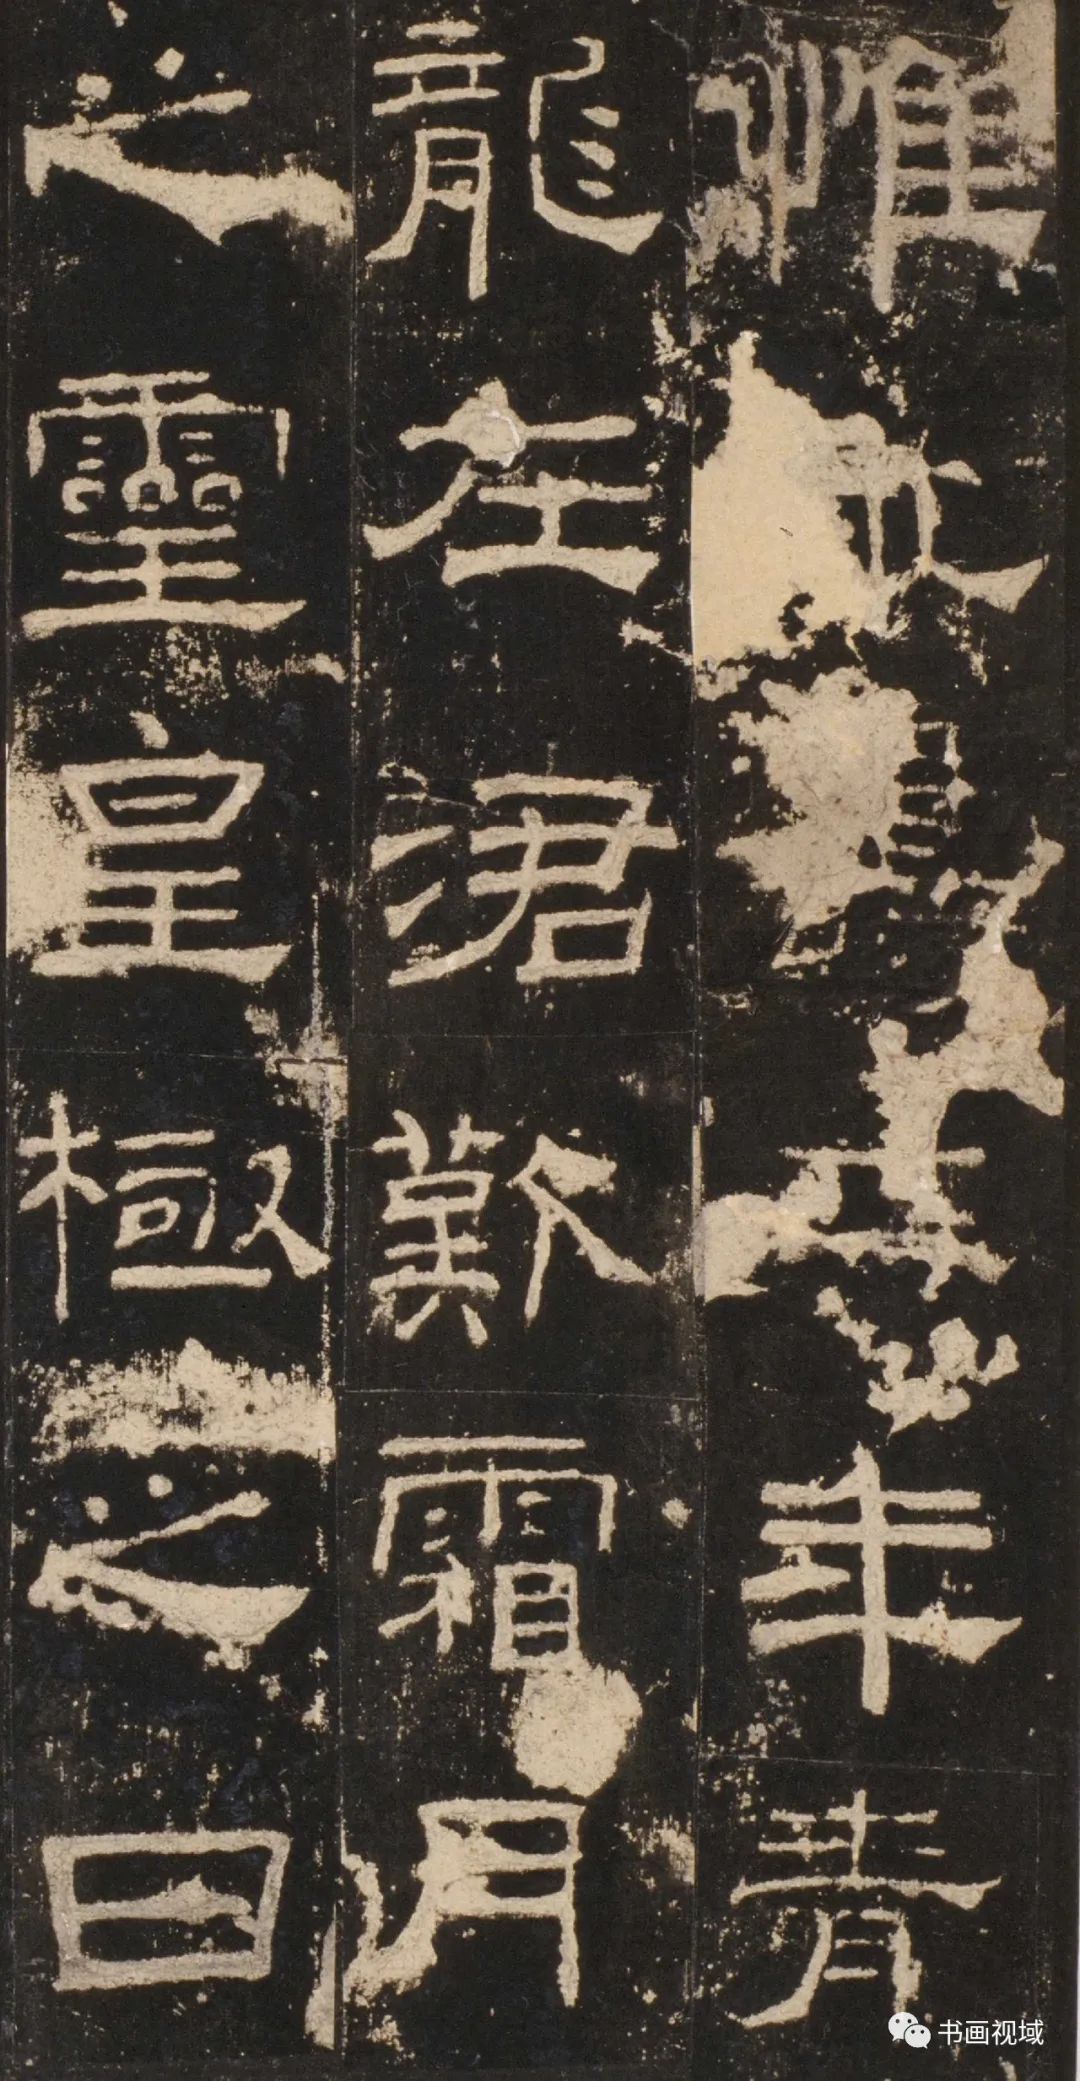 惟永壽二年青
龍在涒歎霜月
之靈皇極之日
书画视域